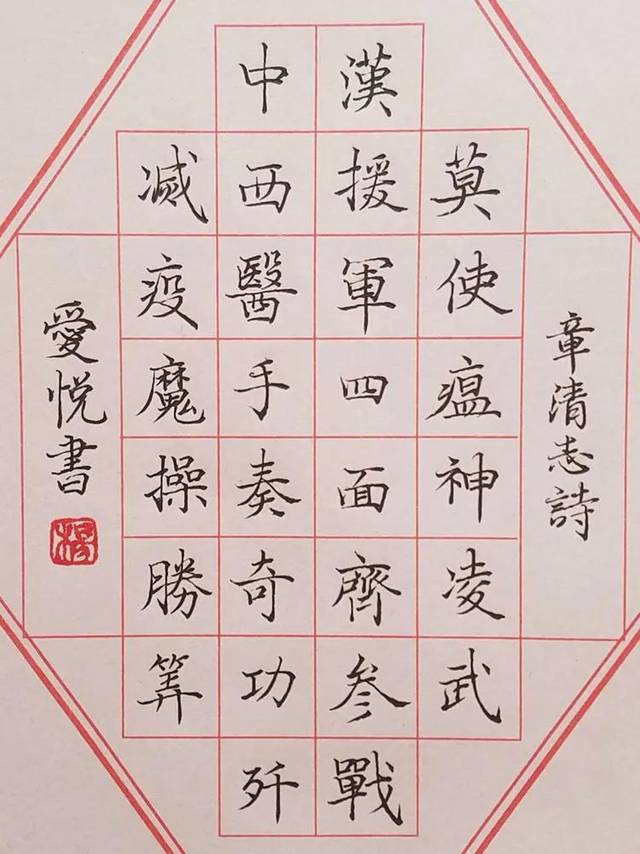 章清志詩
莫使瘟神凌武
漢援軍四面齊参戰
中西醫手奏奇功歼
减疫魔操勝筭
愛悦書